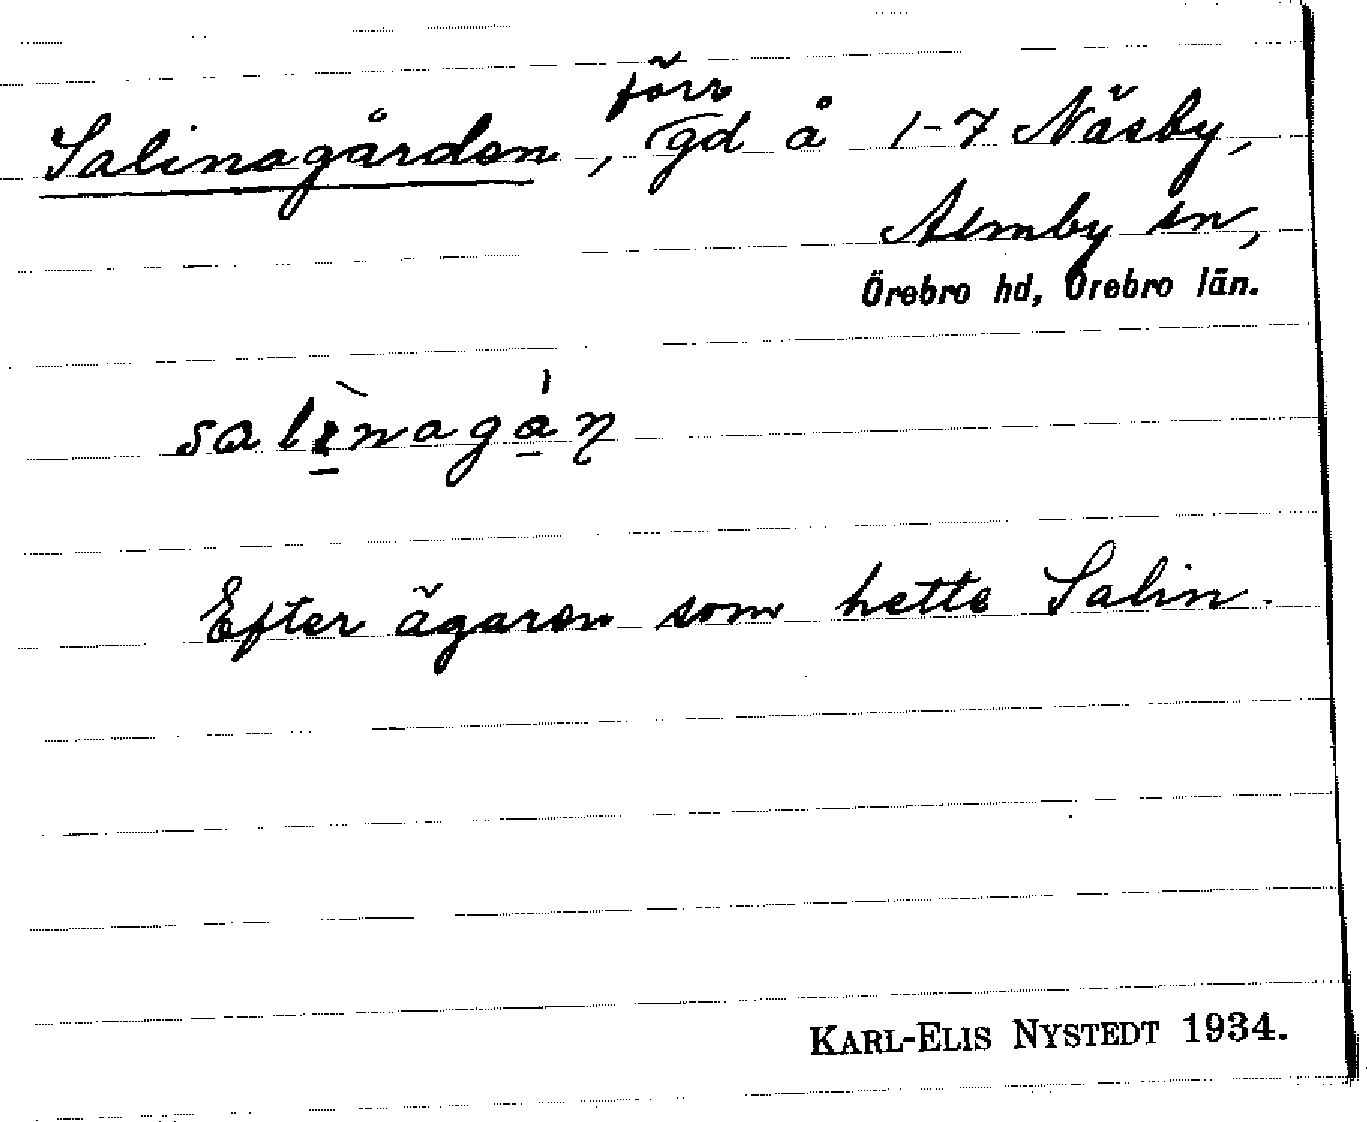 Salinagården, förr gd å 1-7 Näsby,
Almby sn,
Örebro hd, Örebro län.
Efter ägaren som hette Salin.
KARL-ELIS NYSTEDT 1934.